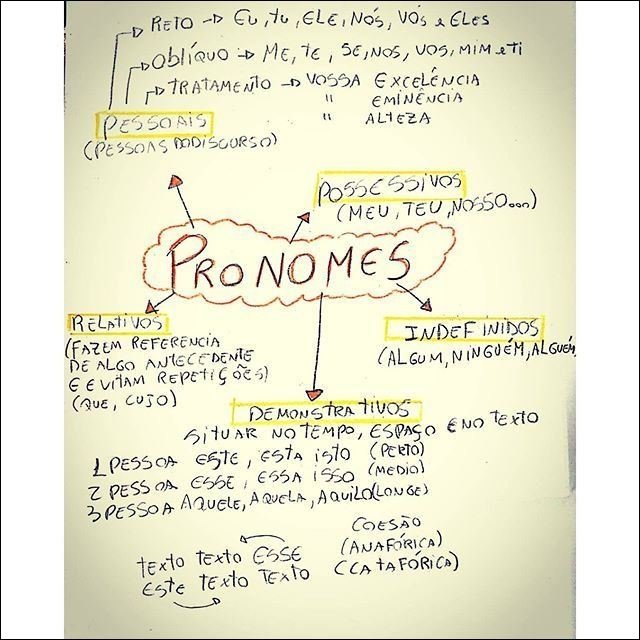 RETO → EU, TU, ELE, NÓS, VÓS e ELES
OBLÍQUO → ME, TE, SE, NOS, VOS, MIM e TI
TRATAMENTO → VOSSA EXCELÊNCIA
" EMINÊNCIA
" ALTEZA
PESSOAIS
(PESSOAS DO DISCURSO)
POSSESSIVOS
(MEU, TEU, NOSSO...)
PRONOMES
RELATIVOS
(FAZEM REFERENCIA
DE ALGO ANTECEDENTE
E EVITAM REPETIÇÕES)
(QUE, CUJO)
INDEFINIDOS
(ALGUM, NINGUÉM, ALGUÉM
DEMONSTRATIVOS
SITUAR NO TEMPO, ESPAÇO E NO TEXTO
1 PESSOA ESTE, ESTA ISTO (PERTO)
2 PESSOA ESSE, ESSA ISSO (MEDIO)
3 PESSOA AQUELE, AQUELA, AQUILO (LONGE)
COESÃO
TEXTO TEXTO ESSE (ANAFÓRICA)
ESTE TEXTO TEXTO (CATAFÓRICA)